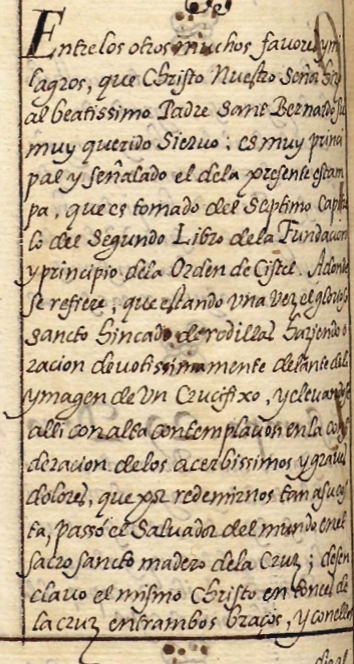 Entre los otros muchos favores, y mi
lagros, que Christo Nuestro Señor hizo
al beatissimo Padre Sant Bernardo su
muy querido Siervo: es muy princi
pal y señalado el de la presente estam
pa, que es tomado del Septimo Capitu
lo del Segundo Libro de la Fundacion
y principio de la Orden de Cistel. Adonde
se refiere, que estando una vez el glorioso
sancto hincado de rodillas haziendo o
racion devotissimamente delante de la
ymagen de Un Crucifixo, y elevandose
alli con alta contemplacion en la consi
deracion de los acerbissimos y graves
dolores, que por redemirnos tan a su cos
ta, passó el Salvador del mundo en el
sacro sancto madero de la Cruz; desen
clavo el mismo Christo entonces de
la cruz entrambos braços, y con ellos